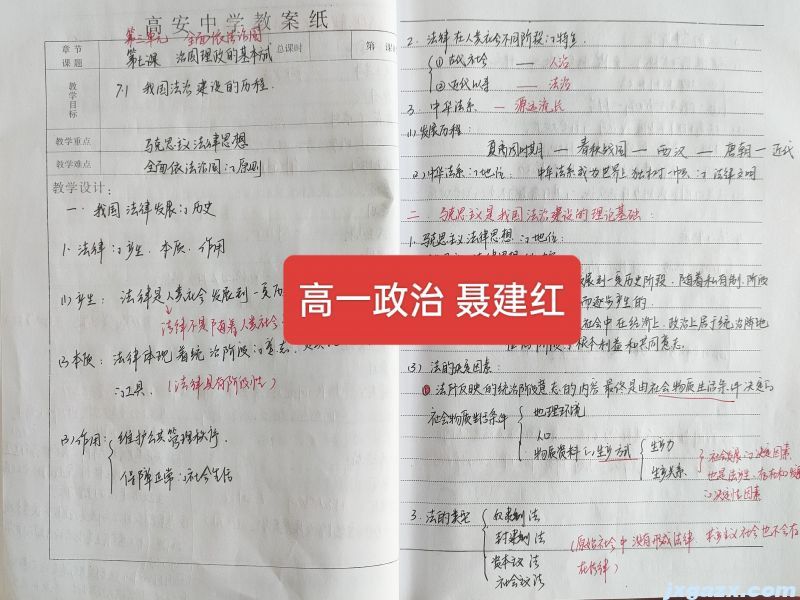 高安中学教案纸
第三单元 全面依法治国
章节
课题
第七课 治国理政的基本方式
总课时
第 课
教学目标
7.1 我国法治建设的历程.
教学重点
马克思主义法律思想
教学难点
全面依法治国的原则
教学设计:
一. 我国法律发展的历史
1. 法律的产生. 本质. 作用
(1) 产生: 法律是人类社会发展到一
法律不是随着人类社会
(2) 本质: 法律体现着统治阶级的意志.
的工具. (法律具有阶级性)
(3) 作用: 维护公共管理秩序.
保障正常的社会生活
2. 法律在人类社会不同阶段的特点
① 古代社会 —— 人治
② 近代以来 —— 法治
3. 中华法系 — 源远流长
(1) 发展历程:
夏商周时期 — 春秋战国 — 西汉 — 唐朝 — 近代
(2) 中华法系的地位: 中华法系成为世界上独树一帜的法律文明
二. 马克思主义是我国法治建设的理论基础:
1. 马克思主义法律思想的地位:
高一政治 聂建红
发展到一定历史阶段, 随着私有制. 阶级
而逐步产生的.
社会中在经济上. 政治上居于统治地
根本利益和共同意志.
(3) 法的决定因素:
① 法所反映的统治阶级意志的内容最终是由社会物质生活条件决定的
社会物质生活条件
地理环境
人口
物质资料的生产方式
生产力
生产关系
社会发展的决定因素
也是法产生. 存在和发展
的决定性因素
3. 法的类型
奴隶制法
封建制法
资本主义法
社会主义法
(原始社会中没有形成法律. 共产主义社会也不会存
在法律)
jxgazx.com